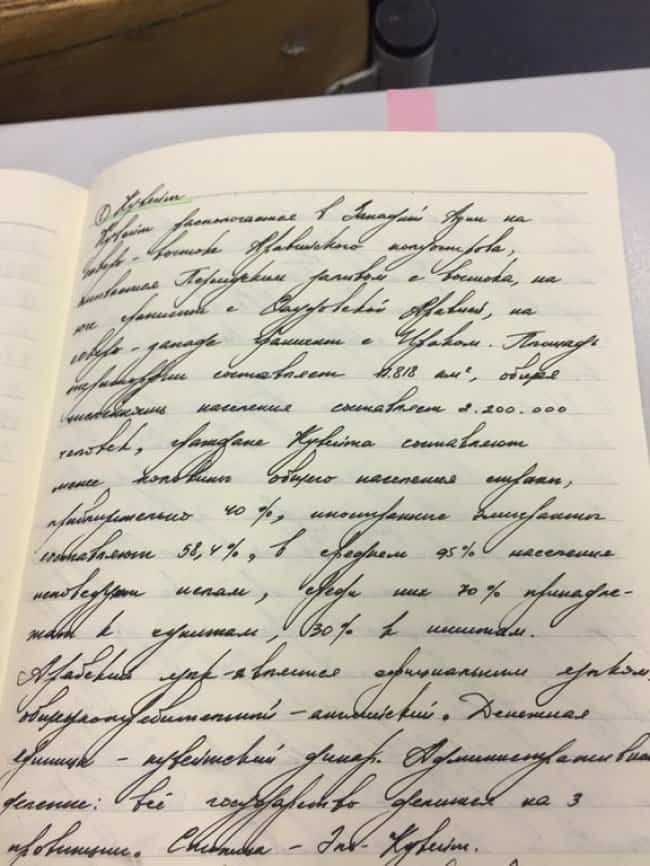 ① Кувейт
Кувейт располагается в Западной Азии на
северо-востоке Аравийского полуострова,
омывается Персидским заливом с востока, на
юге граничит с Саудовской Аравией, на
северо-западе граничит с Ираком. Площадь
территории составляет 17.818 км², общая
численность населения составляет 2.200.000
человек, граждане Кувейта составляют
менее половины общего населения страны,
приблизительно 40%, иностранные эмигранты
составляют 58,4%, в среднем 95% населения
исповедуют ислам, среди них 70% принадле-
жат к суннитам, 30% к шиитам.
Арабский язык является официальным языком,
общеупотребительный – английский. Денежная
единица – кувейтский динар. Административное
деление: всё государство делится на 3
провинции. Столица – Эль-Кувейт.